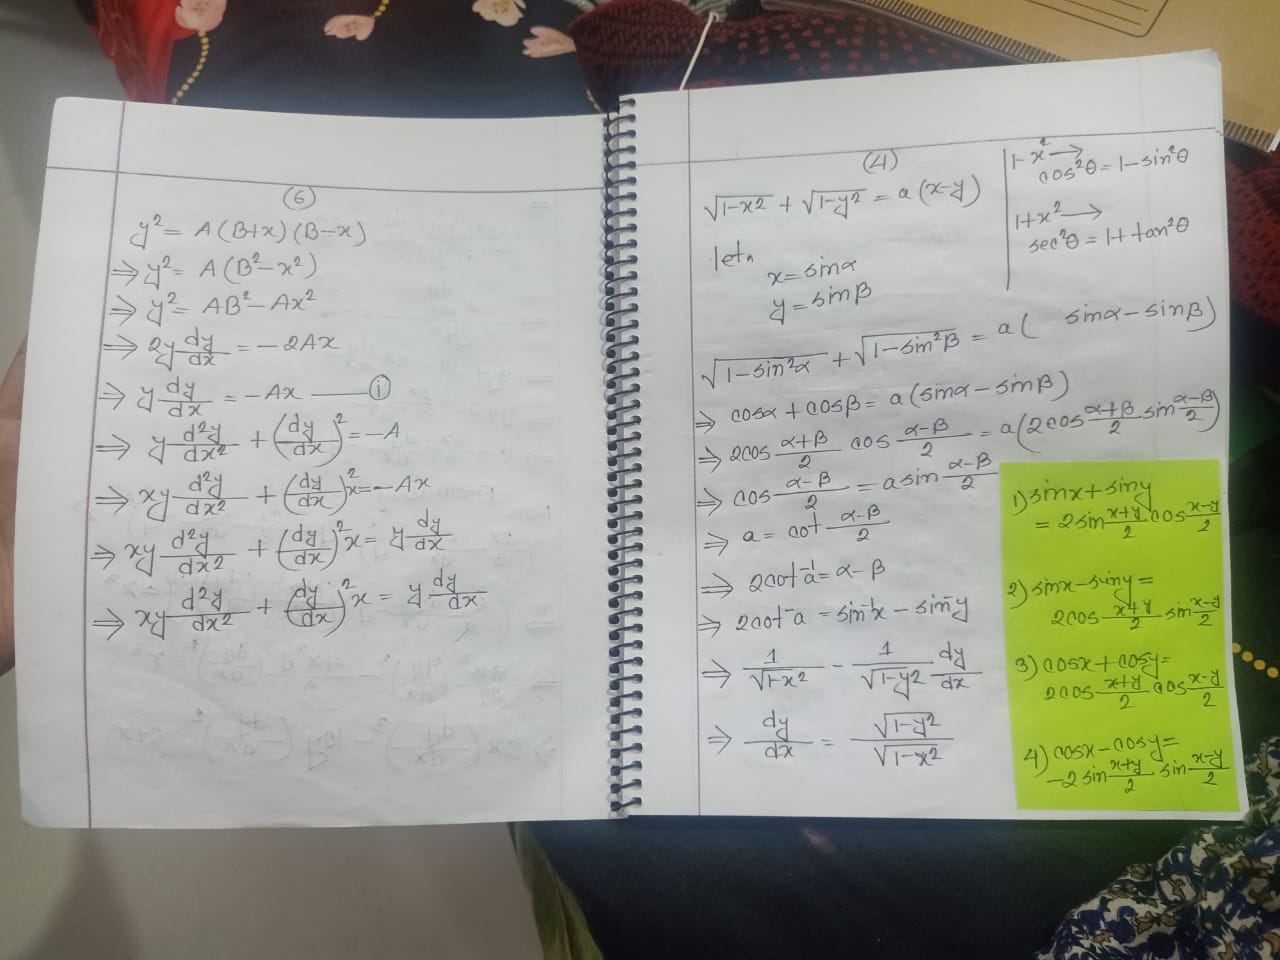 (6)
y² = A(B+x)(B-x)
⇒ y² = A(B²-x²)
⇒ y² = AB²-Ax²
⇒ 2y dy/dx = -2Ax
⇒ y dy/dx = -Ax —— (i)
⇒ y d²y/dx² + (dy/dx)² = -A
⇒ xy d²y/dx² + (dy/dx)² x = -Ax
⇒ xy d²y/dx² + (dy/dx)² x = y dy/dx
⇒ xy d²y/dx² + (dy/dx)² x = y dy/dx
(4)
√1-x² + √1-y² = a(x-y)
let,
x = sinα
y = sinβ
1-x² →
cos²θ = 1-sin²θ
1+x² →
sec²θ = 1+tan²θ
√1-sin²α + √1-sin²β = a( sinα-sinβ)
⇒ cosα + cosβ = a(sinα-sinβ)
⇒ 2cos α+β/2 cos α-β/2 = a(2cos α+β/2 sin α-β/2)
⇒ cos α-β/2 = a sin α-β/2
⇒ a = cot α-β/2
⇒ 2cot⁻¹a = α-β
⇒ 2cot⁻a = sin⁻¹x - sin⁻y
⇒ 1/√1-x² - 1/√1-y² dy/dx
⇒ dy/dx = √1-y²/√1-x²
1) sinx+siny
= 2sin x+y/2 cos x-y/2
2) sinx-siny =
2cos x+y/2 sin x-y/2
3) cosx+cosy=
2cos x+y/2 cos x-y/2
4) cosx-cosy=
-2sin x+y/2 sin x-y/2